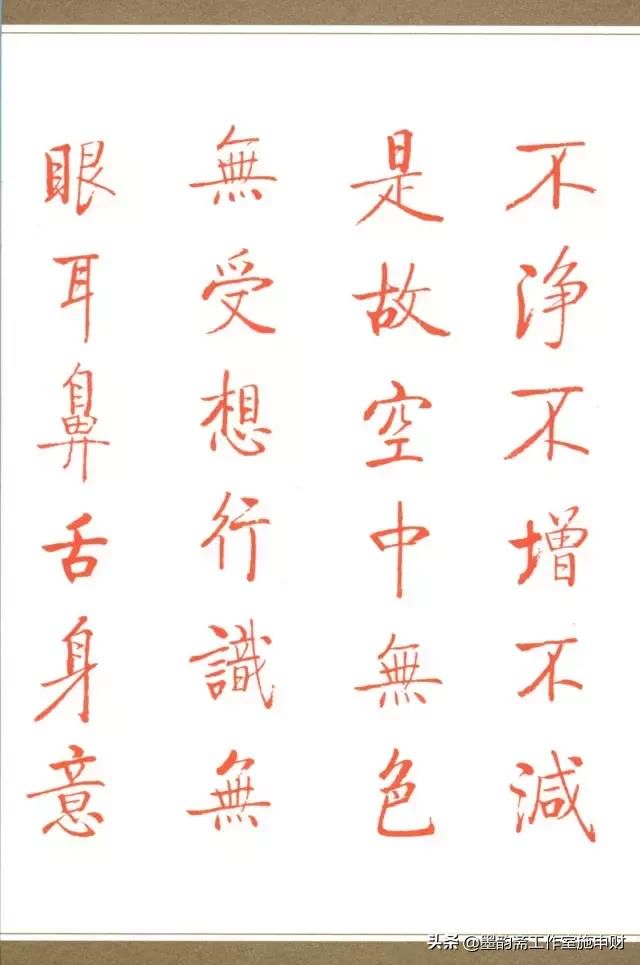 不净不增不減
是故空中無色
無受想行識無
眼耳鼻舌身意
头条 @墨韵斋工作室施申财